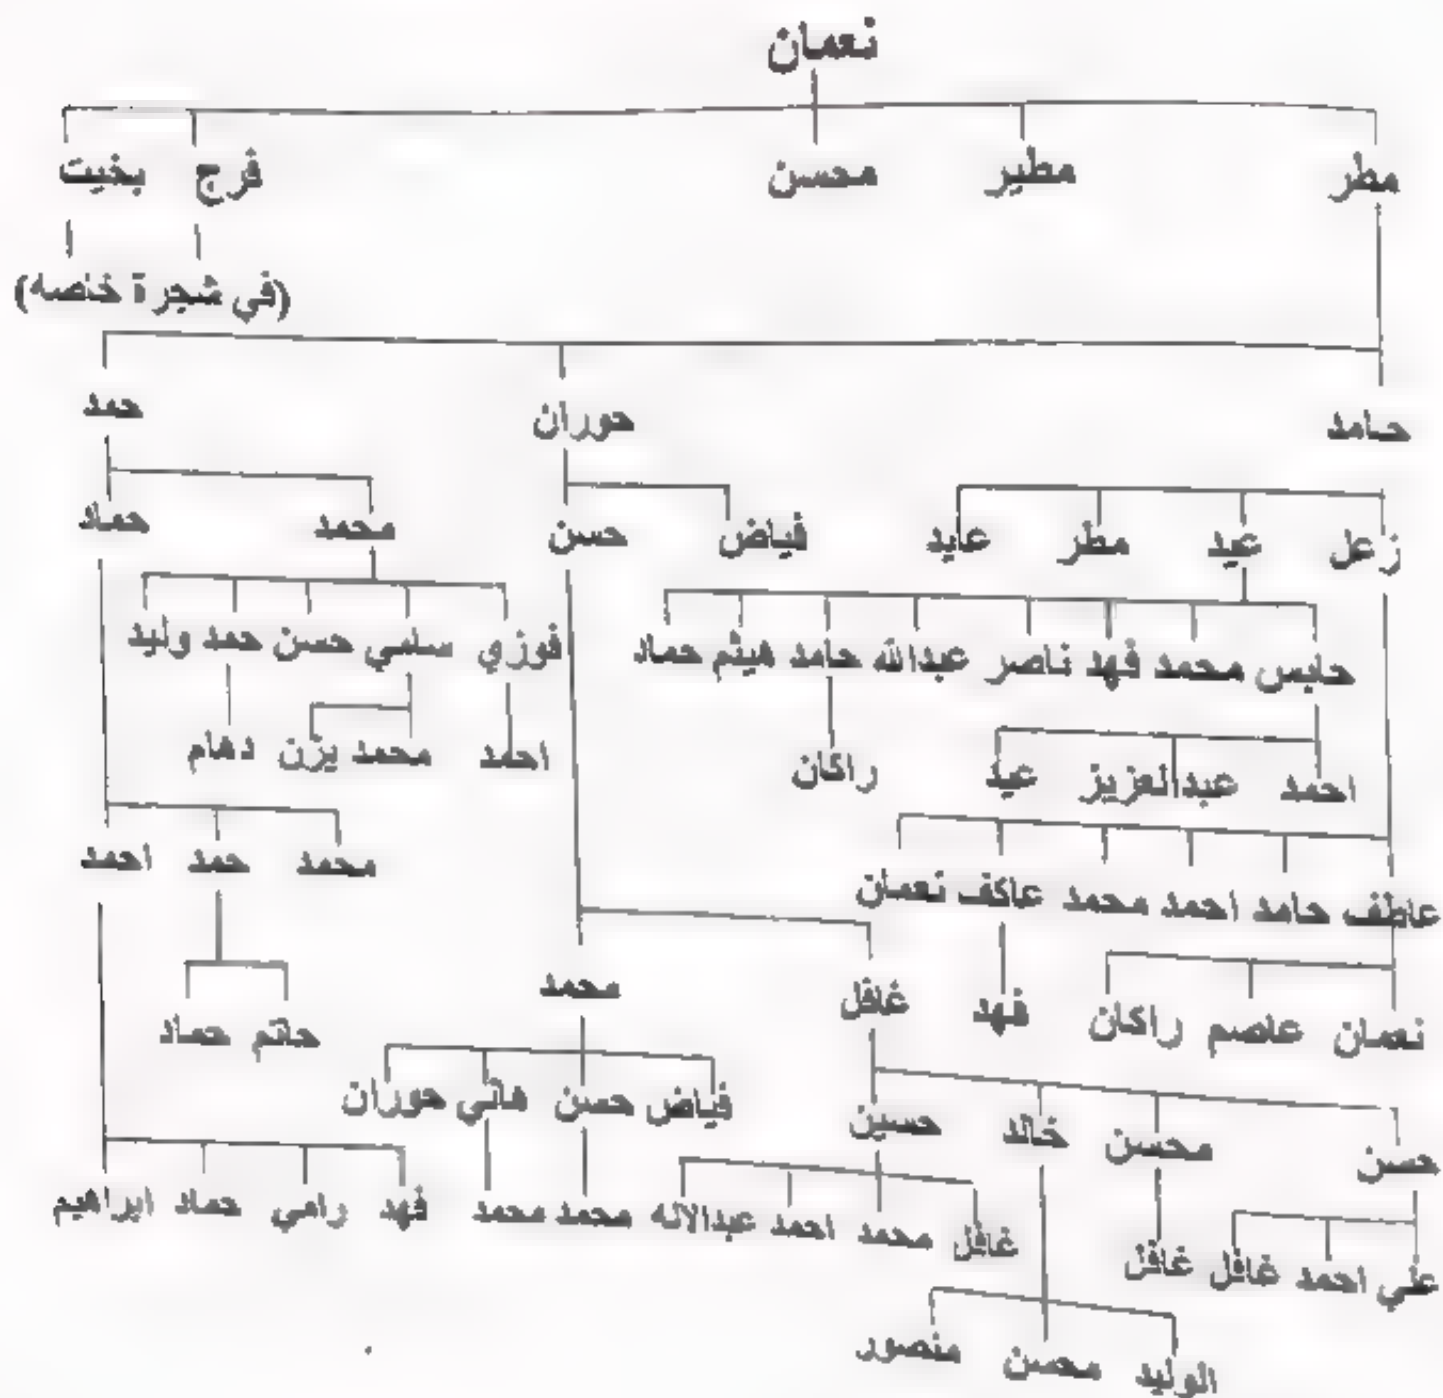 نعمان
مطر مطير محسن فرج بخيت
(في شجرة خاصه)
حامد حوران حمد
زعل عيد مطر عايد فياض حسن محمد حماد
حابس محمد فهد ناصر عبدالله حامد هيثم حماد فوزي سلمي حسن حمد وليد
احمد عبدالعزيز عيد راكان احمد محمد يزن دهام
عاطف حامد احمد محمد عاكف نعمان محمد حمد احمد
نعمان عاصم راكان فهد غافل محمد حاتم حماد
حسن محسن خالد حسين فياض حسن هاني حوران
علي احمد غافل غافل غافل محمد احمد عبدالاله محمد محمد فهد رامي حماد ابراهيم
الوليد محسن منصور